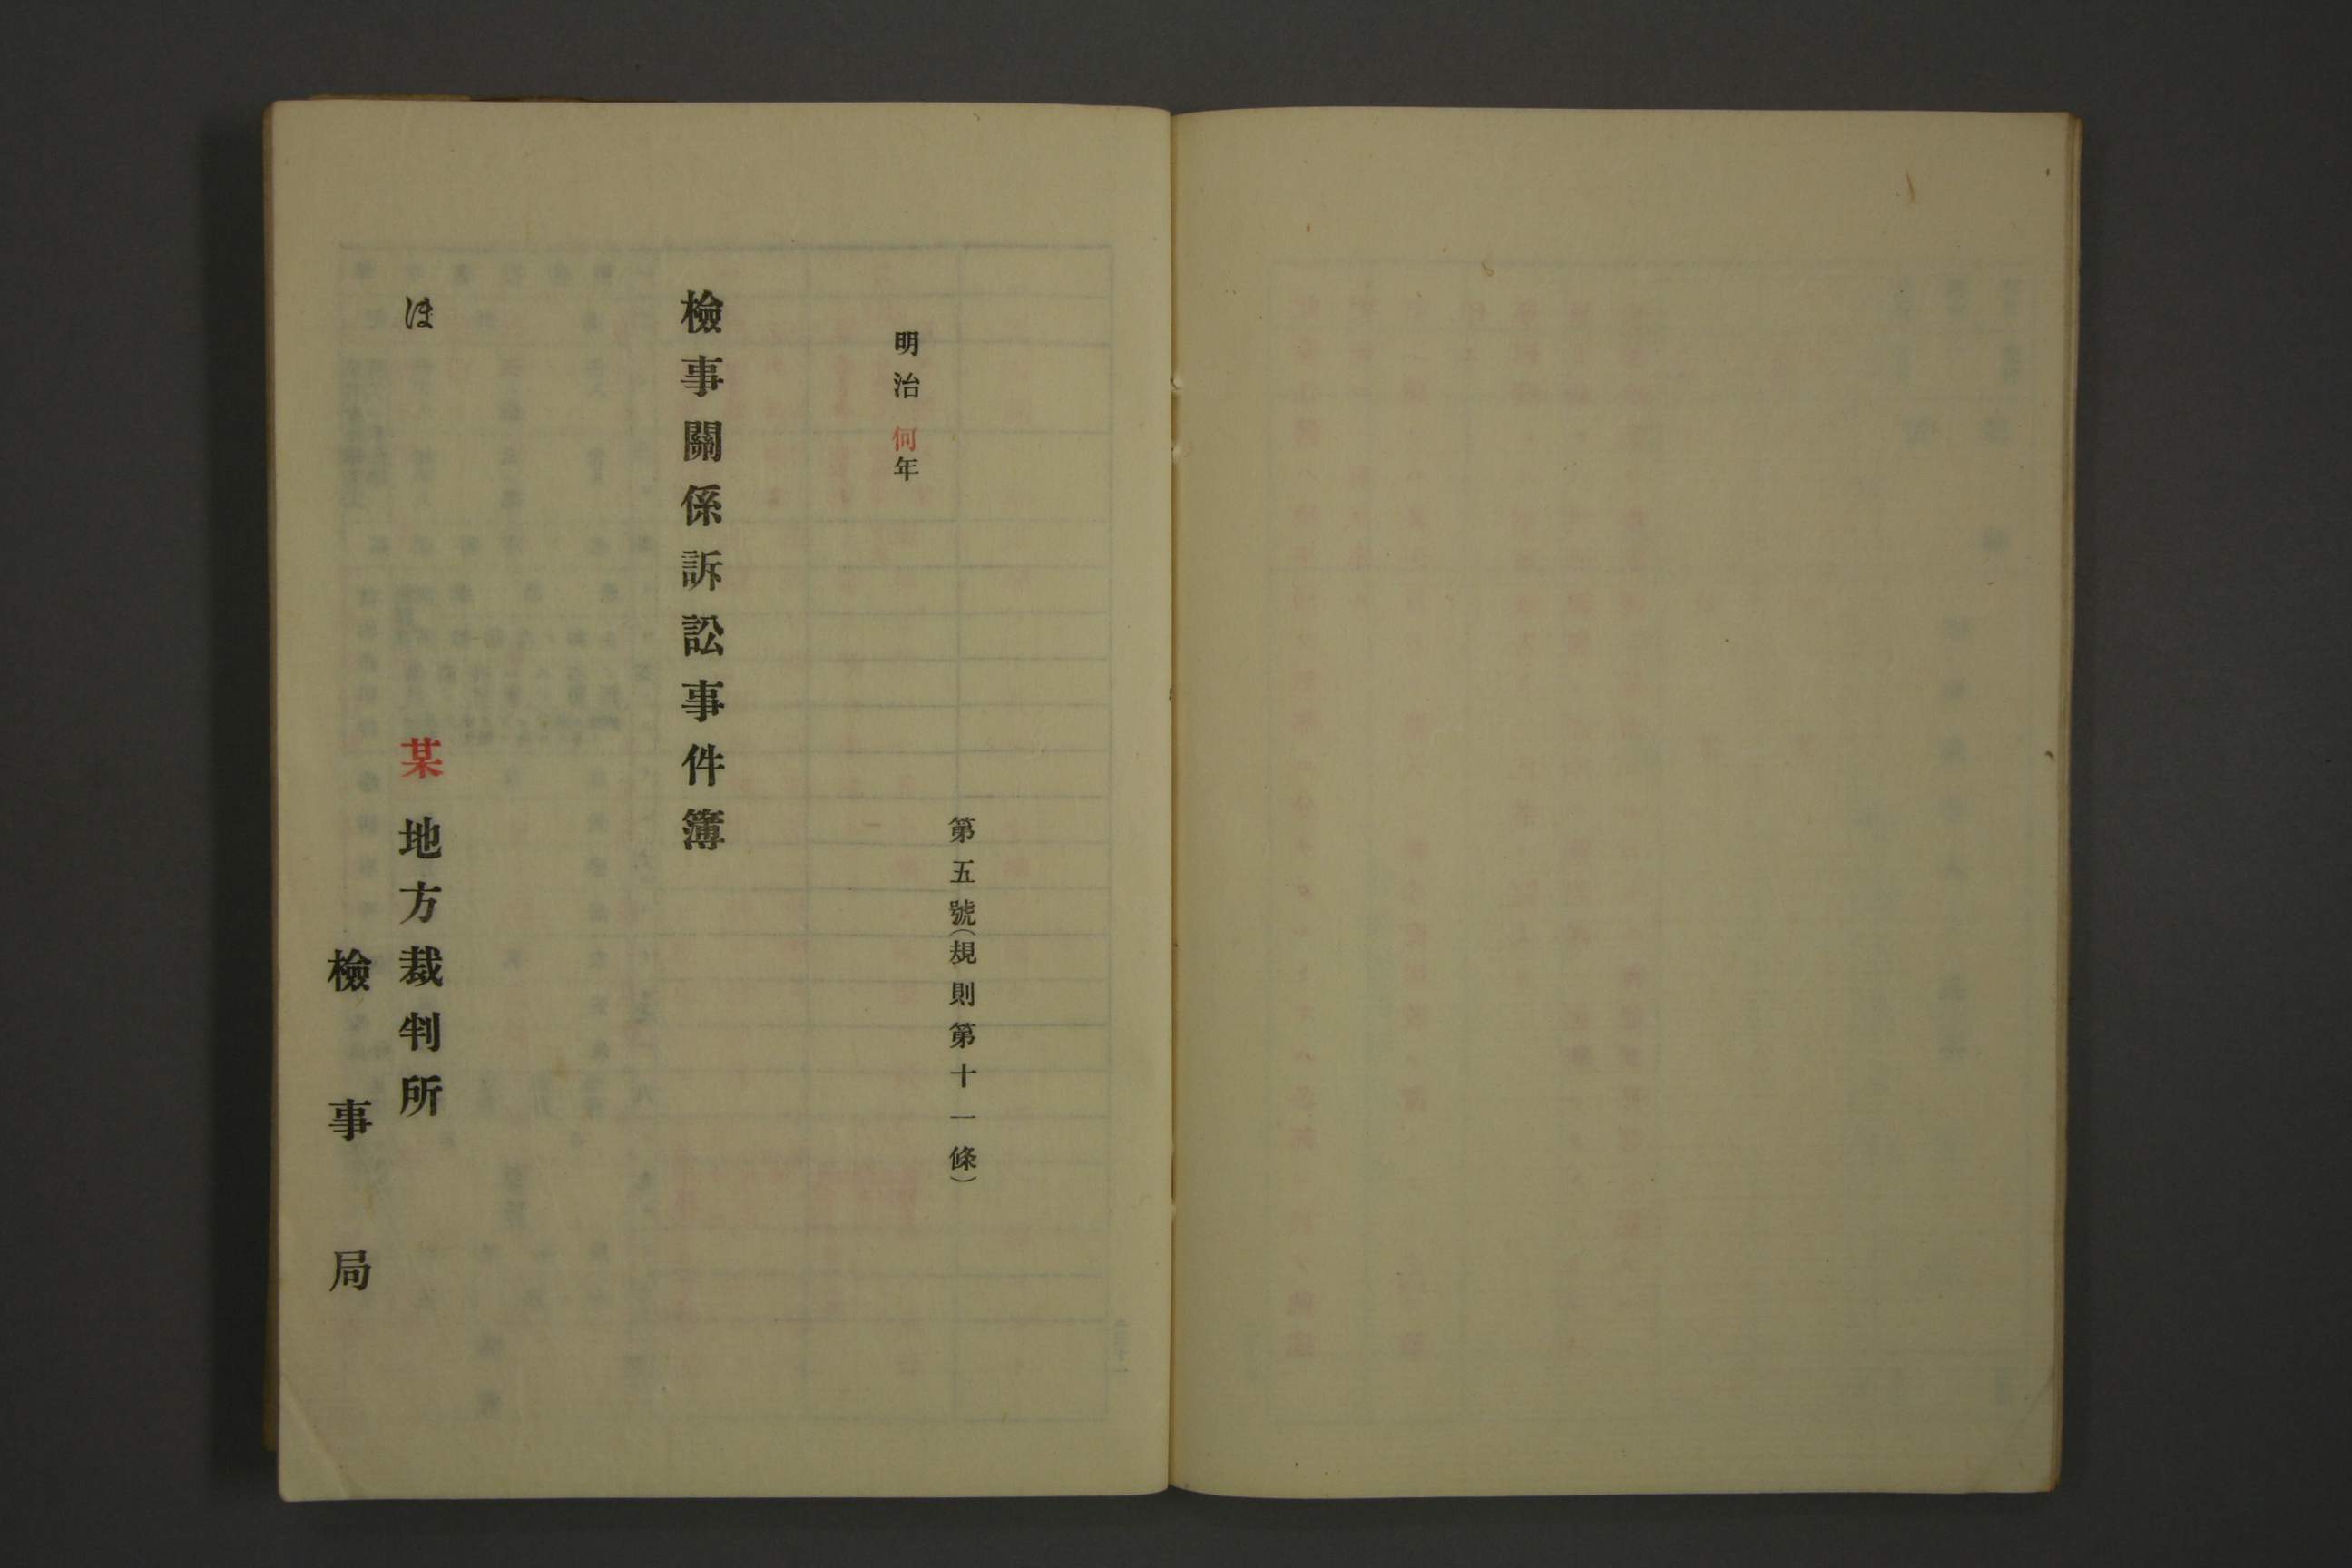 第五號(規則第十一條)
明治何年
檢事關係訴訟事件簿
ほ
某地方裁判所
檢事局